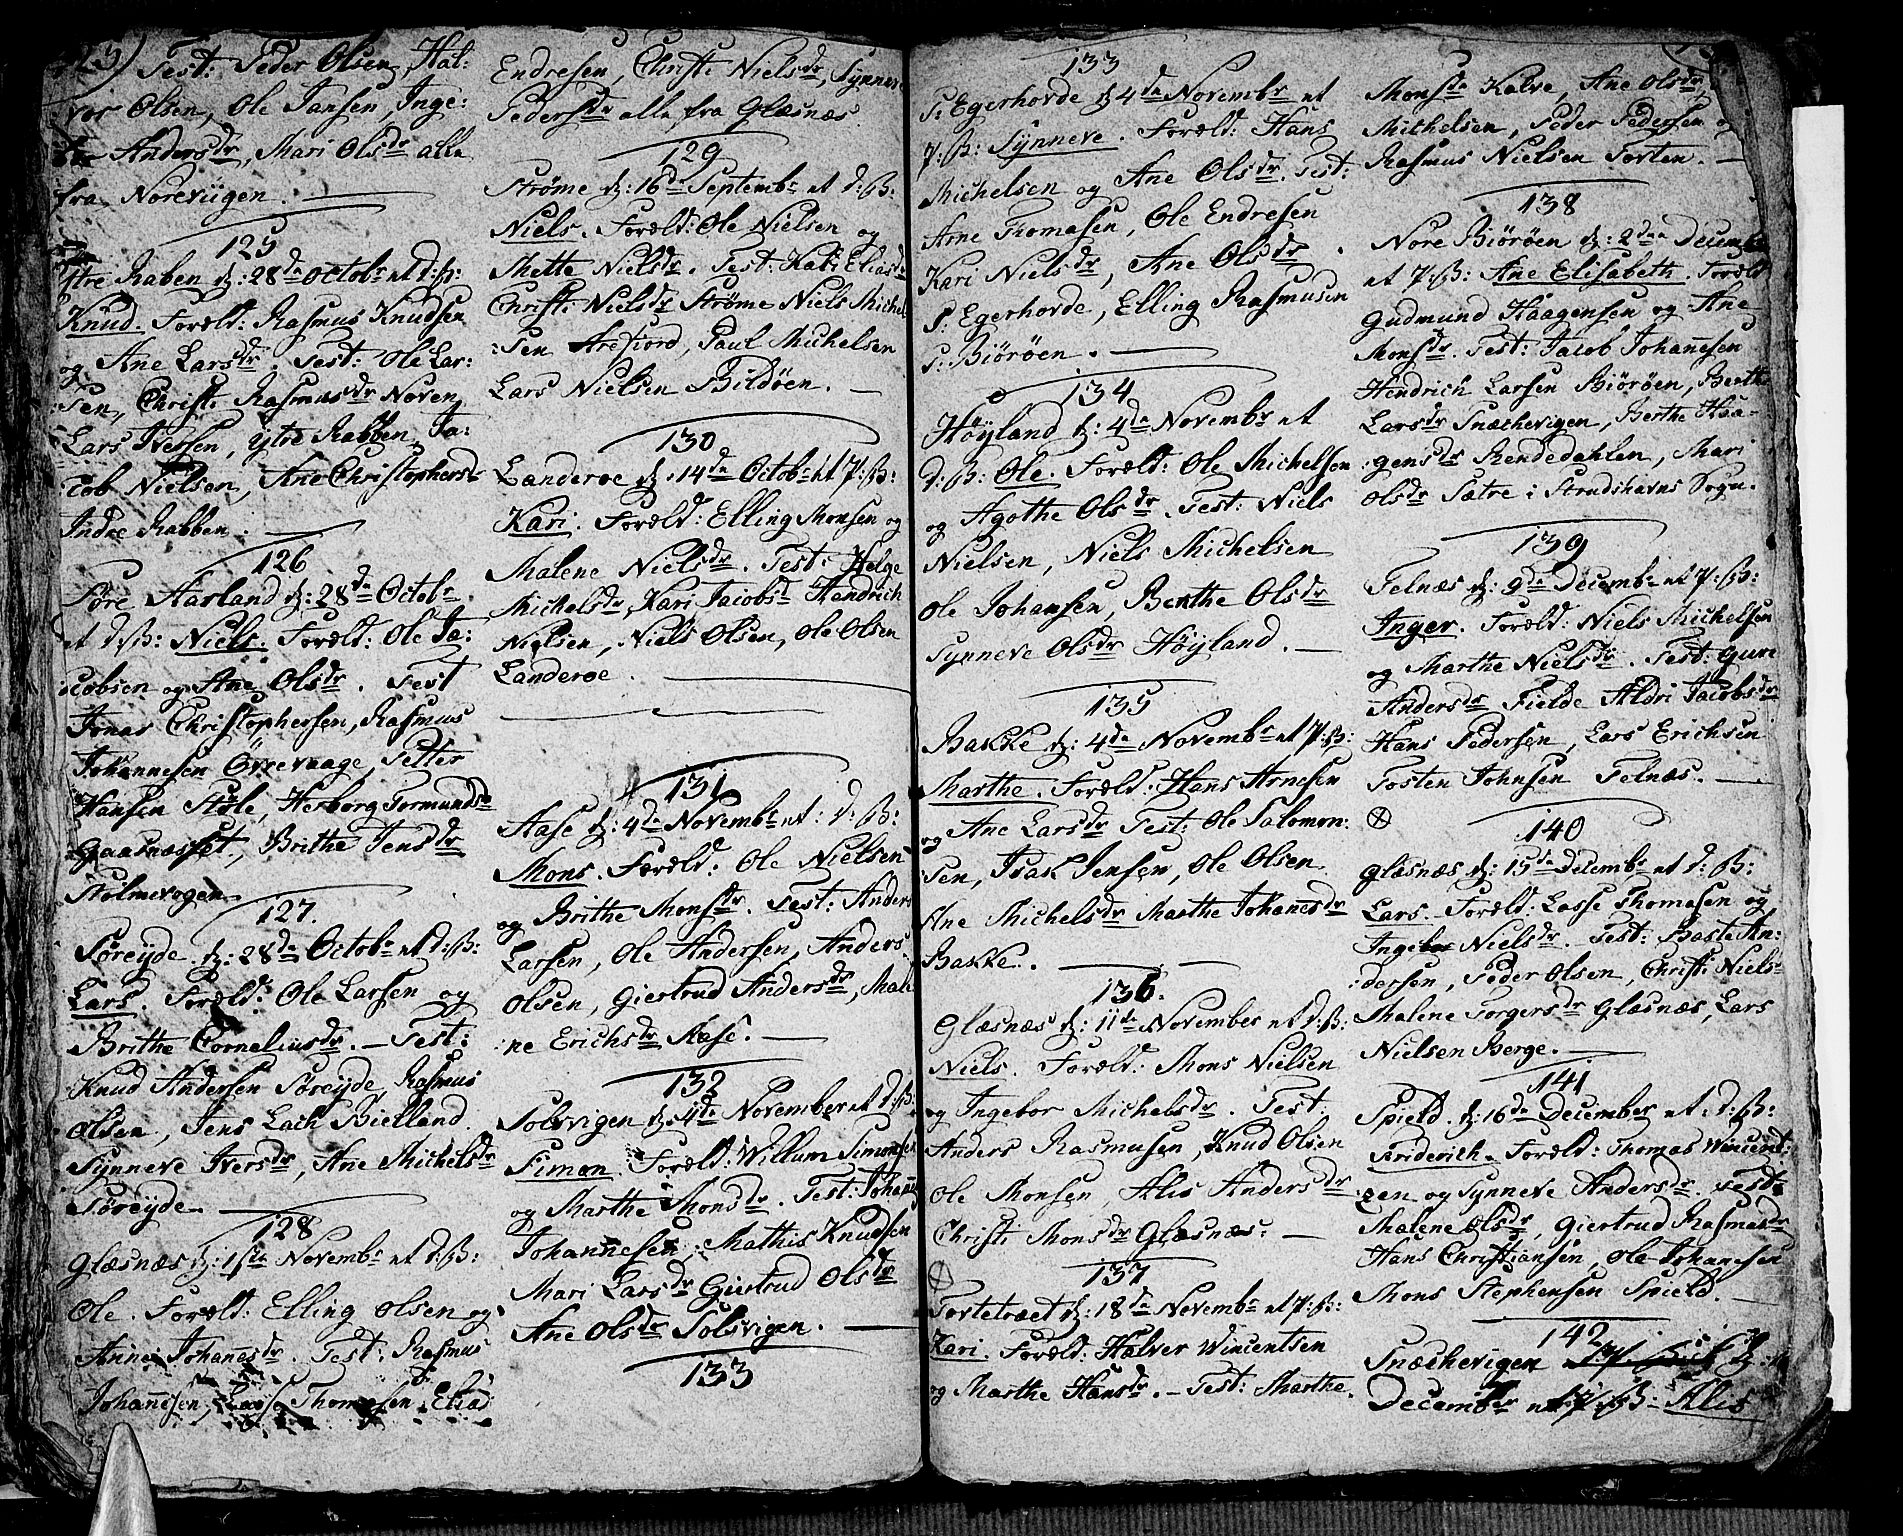 Test: Peder Olsen, Hal:
vor Olsen, Ole Jansen, Inge:
Andersdr, Mari Olsdr alle
fra Noreviigen.
125
Ytre Raben d: 28da Octobr at d: ß:
Knud. Foræld: Rasmus Knudsen
og Ane Larsdr. Test: Ole Lar:
sen, Christi Rasmusdr Noven
Lars Iversen, ytre Rabben, Ja:
cob Nielsen, Ane Christophersdr
Indre Rabben.
126
Søre Aarland d: 28da Octobr.
at d: ß: Niels. Foræld: Ole Ja:
cobsen og Ane Olsdr. Test
Jonas Christophersen, Rasmus
Johannesen Övrevaage, Petter
Hansen Stüle, Herborg Tormundsdr
Gaasnæsset, Brithe Jensdr
Stolmevogen
127.
Søreyde d: 28da Octobr at d: ß:
Lars. Foræld: Ole Larsen og
Brithe Corneliusdr. Test:
Knud Andersen Søreyde, Rasmus
Olsen, Jens Lach Bielland
Synneve Iversdr, Ane Michelsdr
Søreyde
128
Glæsnæs d: 1ste Novembr at d: ß:
Ole. Foræld: Elling Olsen og
Anne Johanesdr. Test: Rasmus
Johannesen, Lasse Thomesen, Eliad
Endresen, Christi Nielsdr, Synneve
Pedersdr alle fra Glæsnæs
129
Strøme d: 16da Septembr at d: ß:
Niels. Foræld: Ole Nielsen og
Mette Nielsdr. Test: Kari Eliasdr
Christi Nielsdr Strøme Niels Michel
:sen Arefiord, Paul Michelsen
Lars Nielsen Bildøen.
130
Landeroe d: 14da Octobr at P: ß:
Kari. Foræld: Elling Monsen og
Malene Nielsdr. Test: Helge
Michelsdr, Kari Jacobsd Hendrich
Nielsen, Niels Olsen, Ole Olsen
Landeroe.
131
Aase d: 4da Novembr at: d: ß:
Mons. Foræld: Ole Nielsen
og Brithe Monsdr. Test: Anders
Larsen, Ole Andersen, Anders
Olsen, Giertrud Andersdr, Male
:ne Erichsdr Aase.
132
Solsvigen d: 4da November at d: ß:
Simon. Foræld: Willum Simonsen
og Marthe Monsdr. Test: Johan
Johannesen, Mathis Knudsen
Mari Larsdr Giertrud Olsdr
Ane Olsdr Solsvigen.
133
133
S: Egerhorde d: 4da Novembr at
P: ß: Synneve. Foræld: Hans
Michelsen og Ane Olsdr. Test:
Arne Thomasen, Ole Endresen
Kari Nielsdr, Ane Olsdr
S: Egerhorde, Elling Rasmusen
S: Biörøen.
134
Høyland d: 4da Novembr at
d: ß: Ole. Foræld: Ole Michelsen
og Agothe Olsdr. Test: Niels
Nielsen, Niels Michelsen
Ole Johansen, Berthe Olsdr
Synneve Olsdr Høyland.
135
Bakke d: 4da Novembr at P: ß:
Marthe. Foræld: Hans Arnesen
og Ane Larsdr Test: Ole Salomon:
sen, Isak Jensen, Ole Olsen
Ane Michelsdr Marthe Johanesdr
Bakke.
136.
Glæsnæs d: 11da November at d: ß:
Niels. Foræld: Mons Nielsen
og Ingebor Michelsdr. Test:
Anders Rasmusen, Knud Olsen
Ole Monsen, Alis Andersdr
Christi Monsdr Glæsnæs:
137
Tortetræet d: 18da Novembr at P: ß:
Kari. Foræld: Halver Wincentsen
og Marthe Hansdr. Test: Marthe
Monsdr Kalve, Ane Olsdr,
Michelsen, Peder Pedersen
Rasmus Nielsen Torten.
138
Nore Biörøen d: 2den Decembr
at P: ß: Ane Elisabeth. Foræld
Gudmund Haagensen og Ane
Monsdr. Test: Jacob Johanesen
Hendrich Larsen Biörøen, Berthe
Larsdr Snæchevigen, Berthe Haa-
gensdr Rendedahlen, Mari
Olsdr Sætre i Strudshavns Sogn.
139
Telnæs d: 9da Decembr at P: ß:
Inger. Foræld: Niels Michelsen
og Marthe Nielsdr. Test: Guri
Andersdr Fielde Aldri Jacobsdr
Hans Pedersen, Lars Erichsen
Tosten Johnsen Telnæs.
140
Glæsnæs d: 15da Decembr at d: ß:
Lars. Foræld: Lasse Thomesen og
Ingebor Nielsdr. Test: Baste An:
:dersen, Peder Olsen, Christi Nielsdr
Malene Torgersdr Glæsnæs, Lars
Nielsen Berge.
141
Spield. d: 16da December at d: ß:
Friderich. Foræld: Thomas Wincent:
zen og Synneve Andersdr. Test:
Malene Olsdr, Giertrud Rasmusdr
Hans Christiansen, Ole Johanesen
Mons Stephensen Spield.
142
Snæchevigen
December at P: ß: Alis